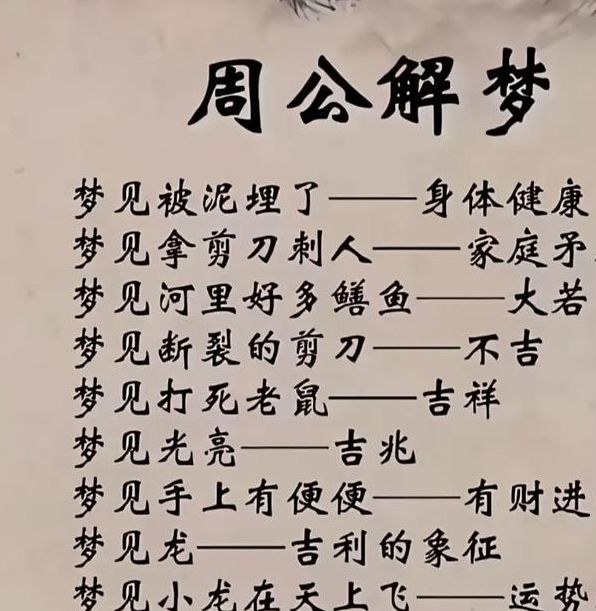 周公解梦
梦见被泥埋了——身体健康
梦见拿剪刀刺人——家庭矛
梦见河里好多鳝鱼——大若
梦见断裂的剪刀——不吉
梦见打死老鼠——吉祥
梦见光亮——吉兆
梦见手上有便便——有财进
梦见龙——吉利的象征
梦见小龙在天上飞——运势